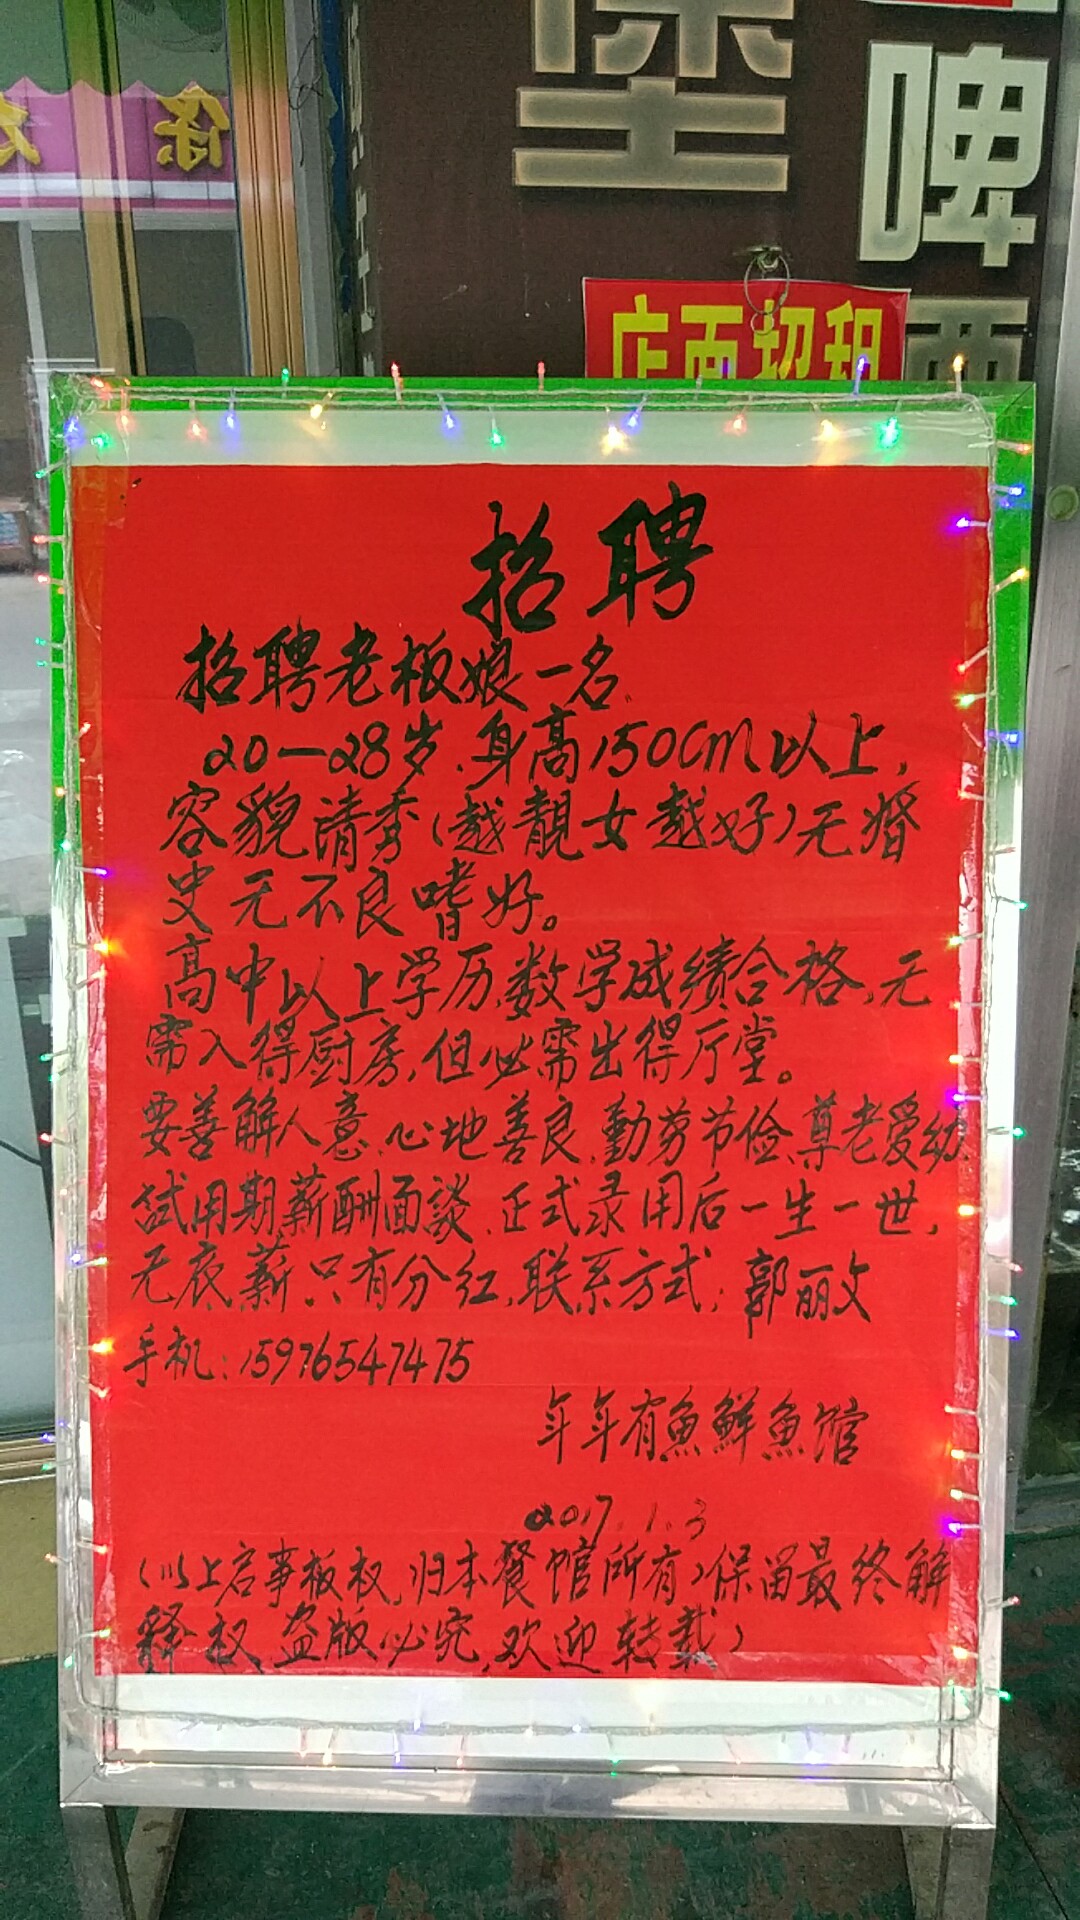 堡
啤
酒
店面招租
招聘
招聘老板娘一名
20—28岁、身高150cm以上,
容貌清秀(越靚女越好)无婚
史无不良嗜好。
高中以上学历,数学成绩合格,无
需入得厨房,但必需出得厅堂。
要善解人意、心地善良、勤劳节俭、尊老爱幼
试用期薪酬面談、正式录用后一生一世,
无底薪只有分红,联系方式:郭丽文
手机:15976547475
年年有魚鮮魚馆
2017.1.3
(以上启事板权,归本餐馆所有)保留最终解
释权,盗版必究,欢迎转載)